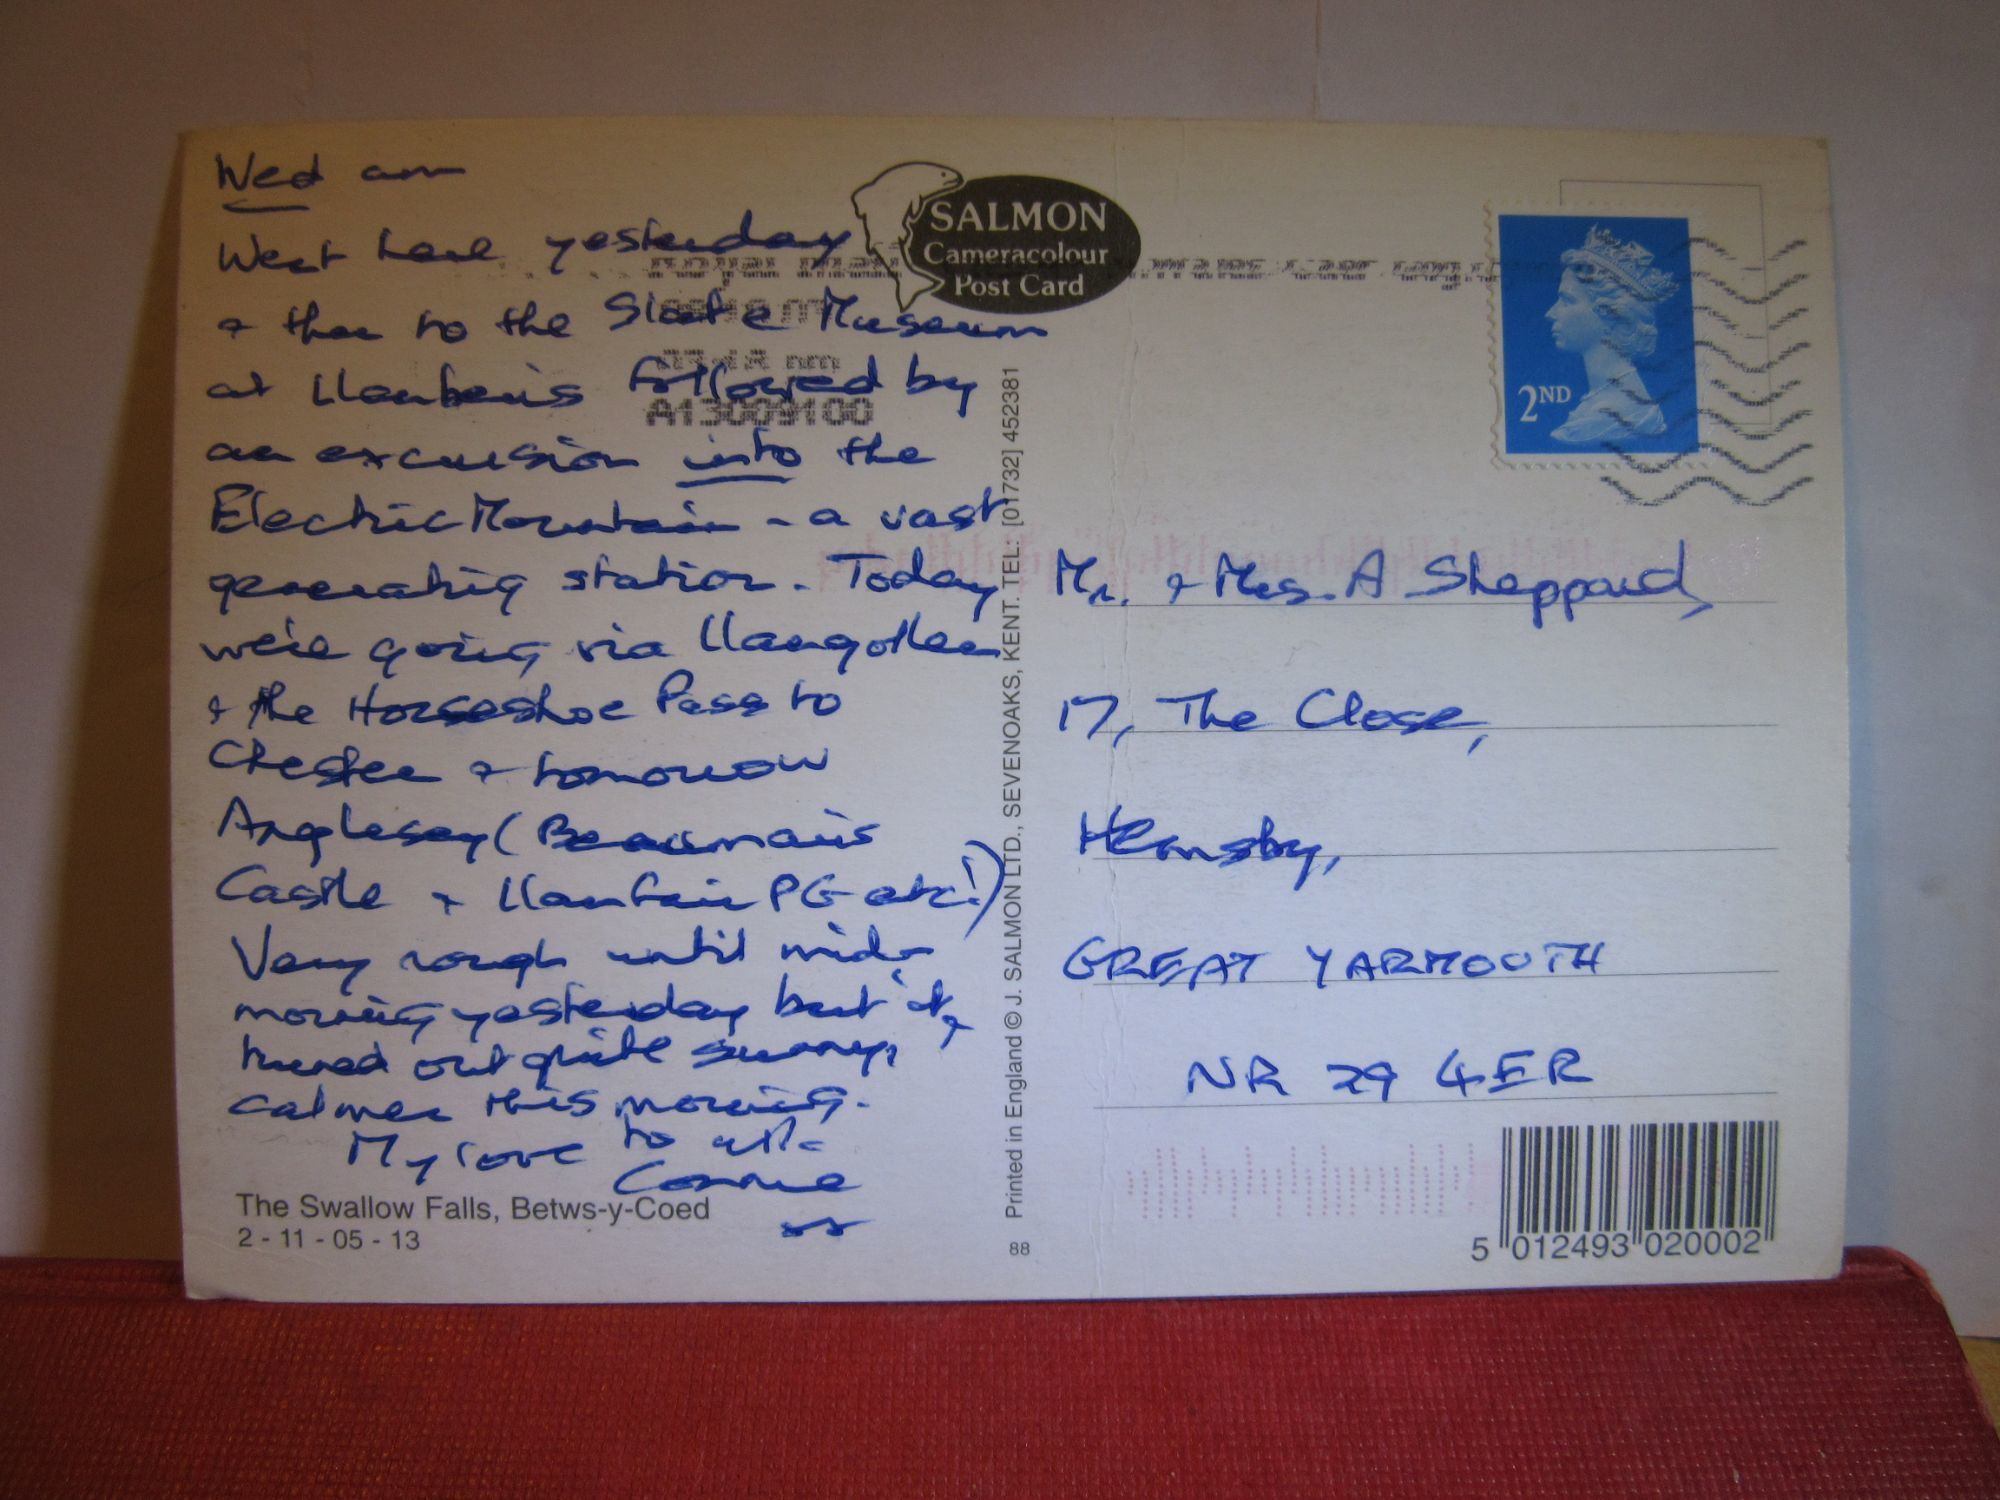 Wed am
Went here yesterday
+ then to the Slate Museum
at Llanberis followed by
an excursion into the
Electric Mountain - a vast
generating station. Today
we're going via Llangollen
+ the Horseshoe Pass to
Chester + tomorrow
Anglesey (Beaumaris
Castle + Llanfair PG etc!)
Very rough until mid-
morning yesterday but it
turned out quite sunny, +
calmer this morning.
My love to all-
Connie
The Swallow Falls, Betws-y-Coed
2 - 11 - 05 - 13
SALMON
Cameracolour
Post Card
A13009100
Printed in England © J. SALMON LTD., SEVENOAKS, KENT. TEL.: [01732] 452381
88
2ND
Mr. + Mrs. A Sheppard,
17, The Close,
Hemsby,
GREAT YARMOUTH
NR 29 4ER
5 012493 020002